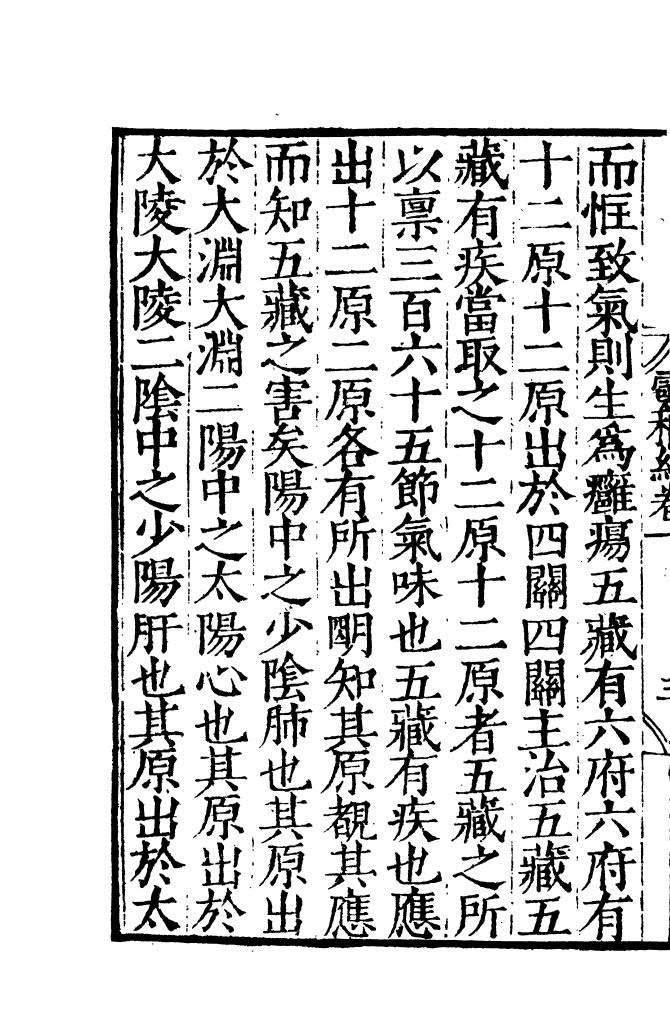 而恇致氣則生為癰瘍五藏有六府六府有
十二原十二原出於四關四關主治五藏五
藏有疾當取之十二原十二原者五藏之所
以禀三百六十五節氣味也五藏有疾也應
出十二原二原各有所出明知其原覩其應
而知五藏之害矣陽中之少陰肺也其原出
於大淵大淵二陽中之太陽心也其原出於
大陵大陵二陰中之少陽肝也其原出於太